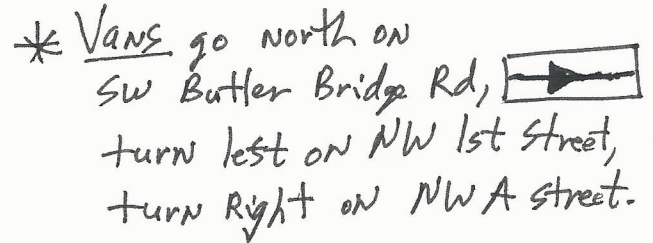 * Vans go North on
SW Butler Bridge Rd,
turn left on NW 1st street,
turn Right on NW A street.